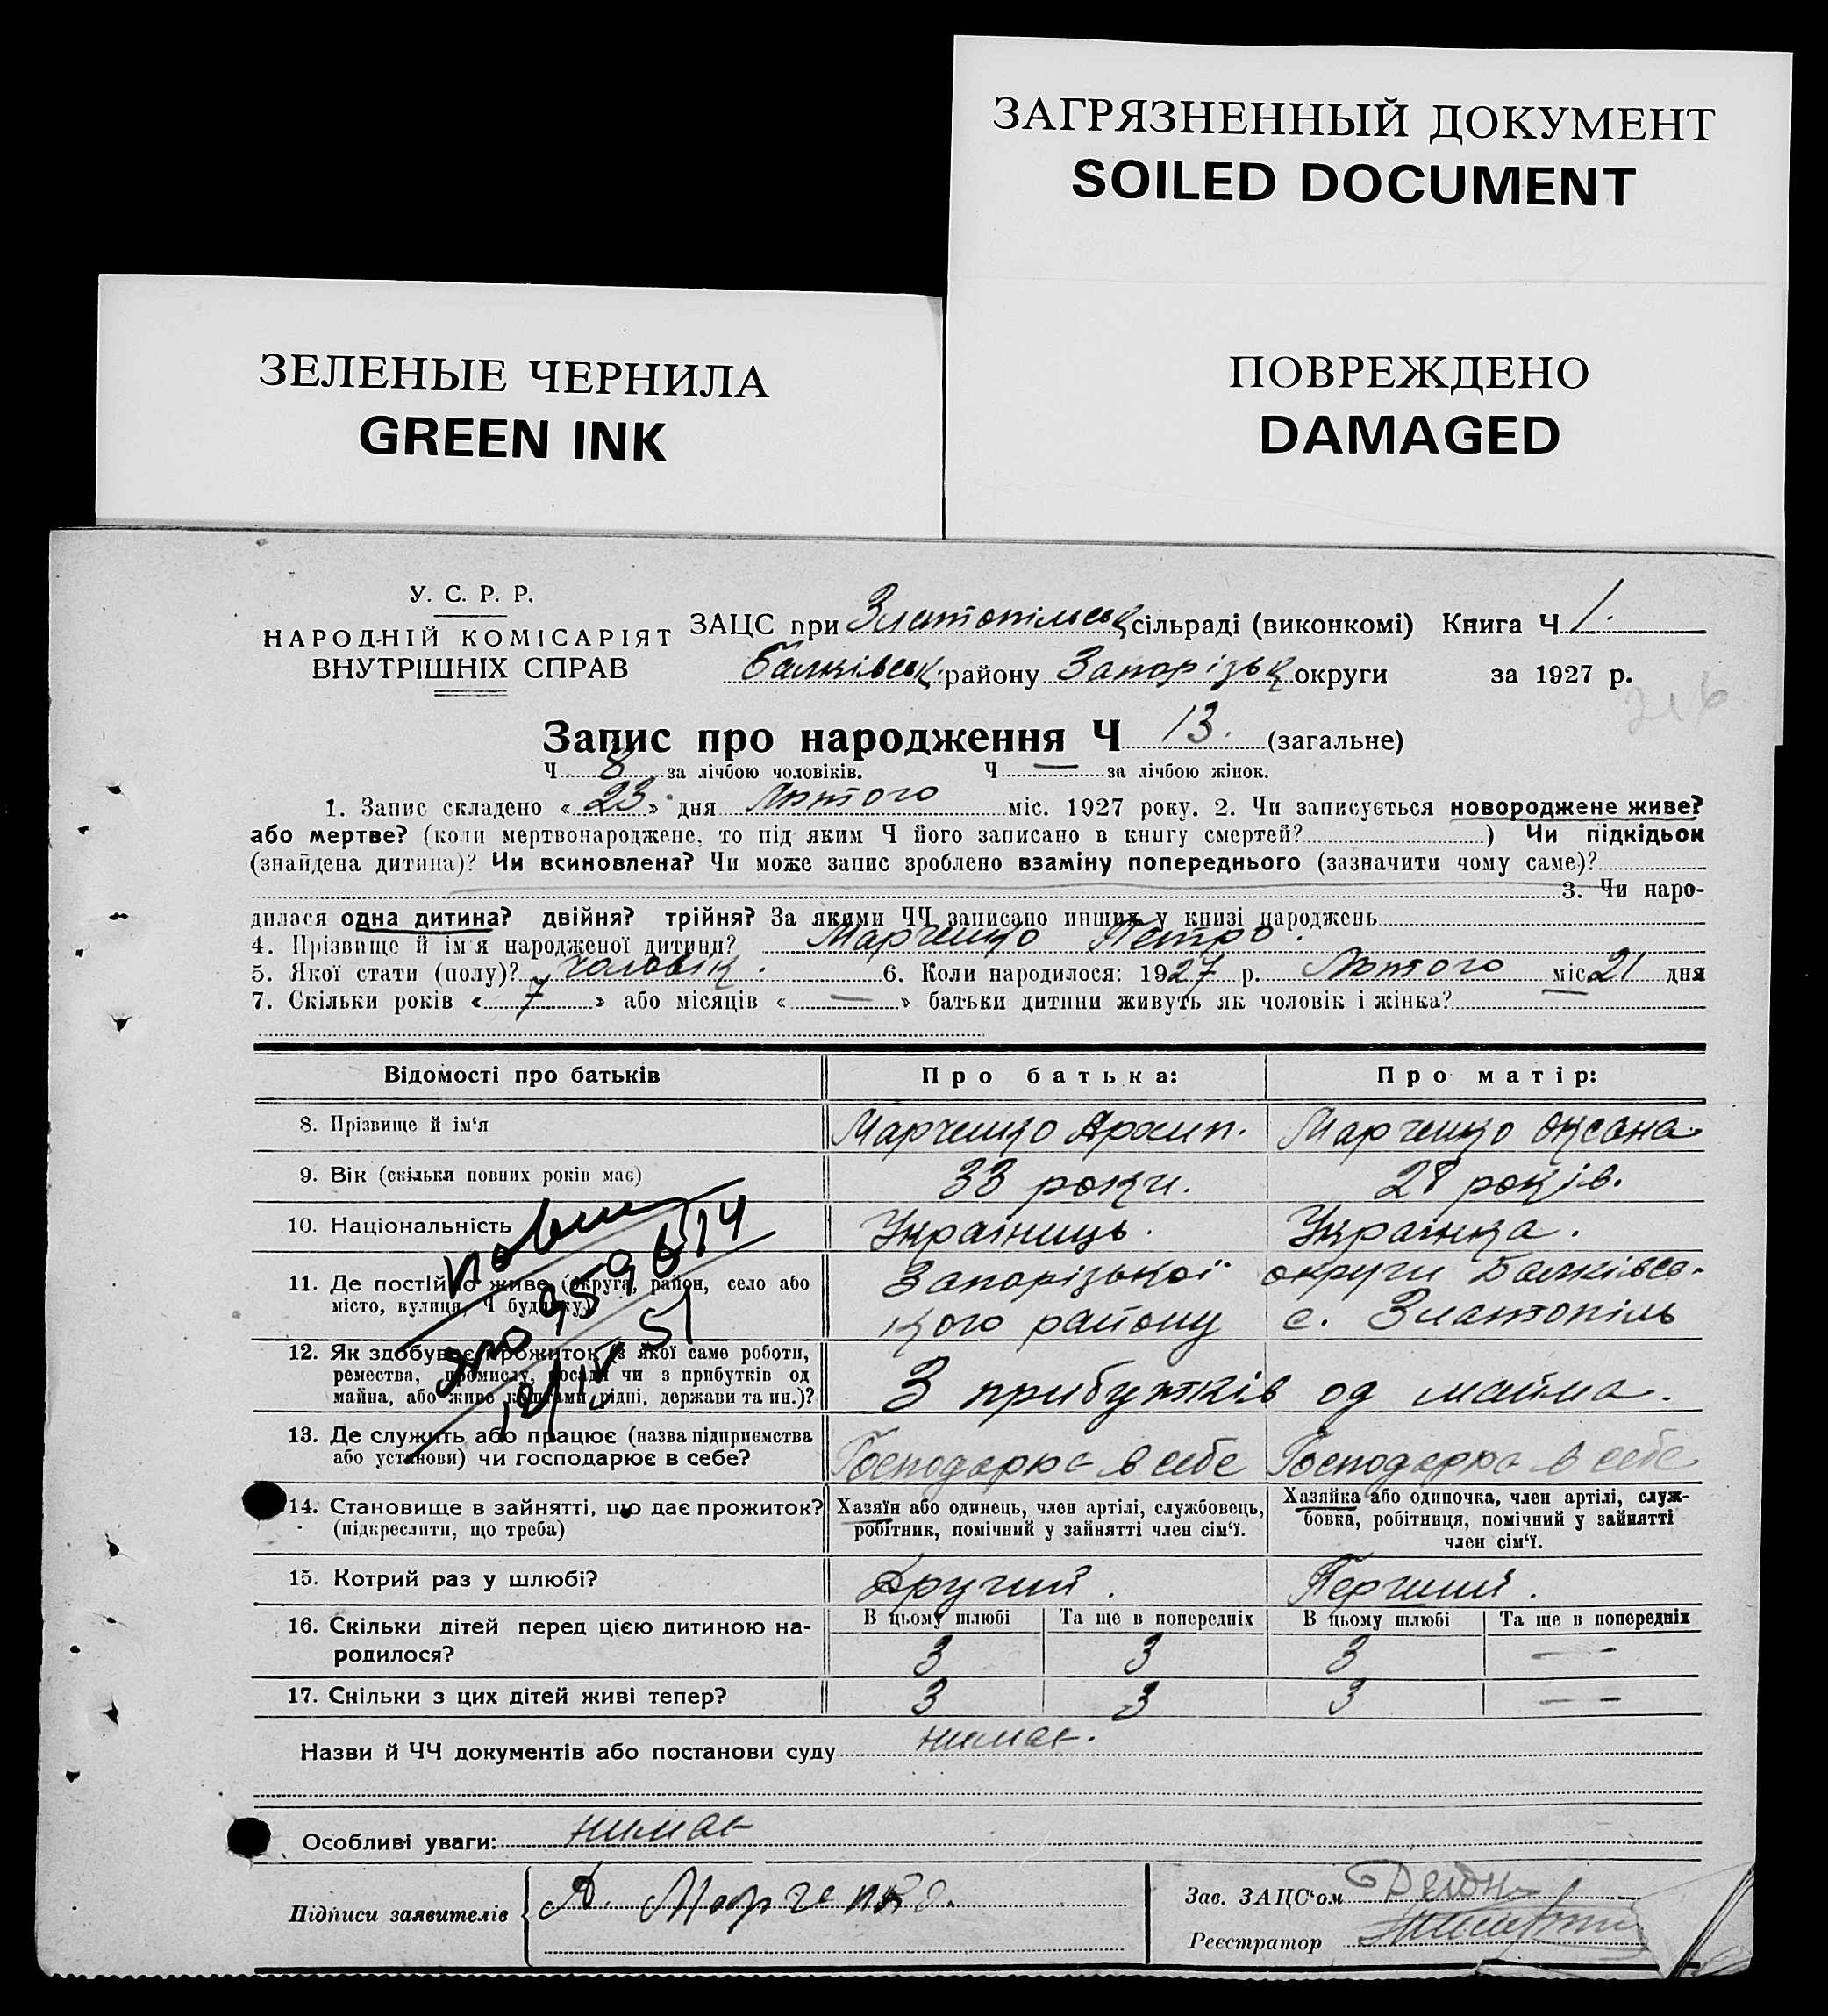 ЗАГРЯЗНЕННЫЙ ДОКУМЕНТ
SOILED DOCUMENT
ЗЕЛЕНЫЕ ЧЕРНИЛА
GREEN INK
ПОВРЕЖДЕНО
DAMAGED
У. С. Р. Р.
НАРОДНІЙ КОМІСАРІЯТ
ВНУТРІШНІХ СПРАВ
ЗАЦС при Златопільськ сільраді (виконкомі) Книга Ч 1.
Балківськ. району Запорізьк округи за 1927 р.
216
Запис про народження Ч 13. (загальне)
Ч 8 за лічбою чоловіків. Ч — за лічбою жінок.
1. Запис складено « 23 » дня Лютого міс. 1927 року. 2. Чи записується новороджене живе?
або мертве? (коли мертвонароджене, то під яким Ч його записано в книгу смертей? ) Чи підкідьок
(знайдена дитина)? Чи всиновлена? Чи може запис зроблено взаміну попереднього (зазначити чому саме)?
3. Чи наро-
дилася одна дитина? двійня? трійня? За якими ЧЧ записано инших у книзі народжень
4. Прізвище й ім'я народженої дитини? Марченко Петро.
5. Якої стати (полу)? чоловік. 6. Коли народилося: 1927 р. Лютого міс 21 дня
7. Скільки років « 7 » або місяців « — » батьки дитини живуть як чоловік і жінка?
Відомості про батьків Про батька: Про матір:
8. Прізвище й ім'я Марченко Архип. Марченко Оксана.
9. Вік (скільки повних років має) 33 роки. 28 років.
10. Національність Українець. Українка.
11. Де постійно живе (округа, район, село або Запорізької округи Балківсь-
місто, вулиця, Ч будинку) кого району с. Златопіль
12. Як здобуває прожиток (з якої саме роботи,
ремества, промислу, посади чи з прибутків од З прибутків од майна.
майна, або живе коштами рідні, держави та ин.)?
13. Де служить або працює (назва підприємства
або установи) чи господарює в себе? Господарює в себе Господарює в себе
14. Становище в зайнятті, що дає прожиток? Хазяїн або одинець, член артілі, службовець, Хазяйка або одиночка, член артілі, служ-
(підкреслити, що треба) робітник, помічний у зайнятті член сім'ї. бовка, робітниця, помічний у зайнятті
член сім'ї.
15. Котрий раз у шлюбі? Другий. Перший.
16. Скільки дітей перед цією дитиною на- В цьому шлюбі Та ще в попередніх В цьому шлюбі Та ще в попередніх
родилося? 3 3 3 —
17. Скільки з цих дітей живі тепер? 3 3 3 — —
Назви й ЧЧ документів або постанови суду нимає.
Особливі уваги: нимає
Підписи заявителів А. Марченко.
Зав. ЗАЦС'ом
Реєстратор